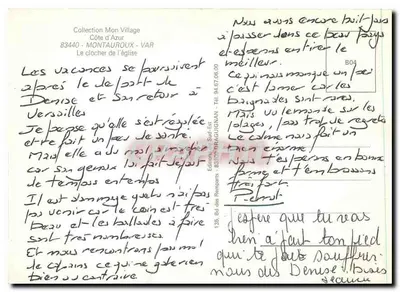 Collection Mon Village
Côte d'Azur
83440 - MONTAUROUX - VAR
Le clocher de l'église
Les vacances se poursuivent
après le départ de
Denise et son retour à
Versailles
Je pense qu'elle s'est régalée
et refait un peu de santé.
Mais elle a eu mal au pied
car son genou lui fait défaut
de temps en temps
Il est dommage que tu n'ai pas
pu venir car le coin est très
beau et les ballades à faire
sont très nombreuses
Et nous rencontrons pas mal
de chiens ce qui ne gâte rien
bien au contraire
Nous avons encore huit jours
à passer dans ce beau pays
et espérons en tirer le
meilleur.
Ce qui nous manque un peu
c'est la mer car les
baignades sont rares
Mais vu le monde sur les
plages, pas trop de regrets
Le calme nous fait un
bien énorme
t'espérons en bonne
forme et t'embrassons
très fort
J'espère que tu vas
bien à fait ton pied
qui te fait souffrir
nous dis Denise. bises
804